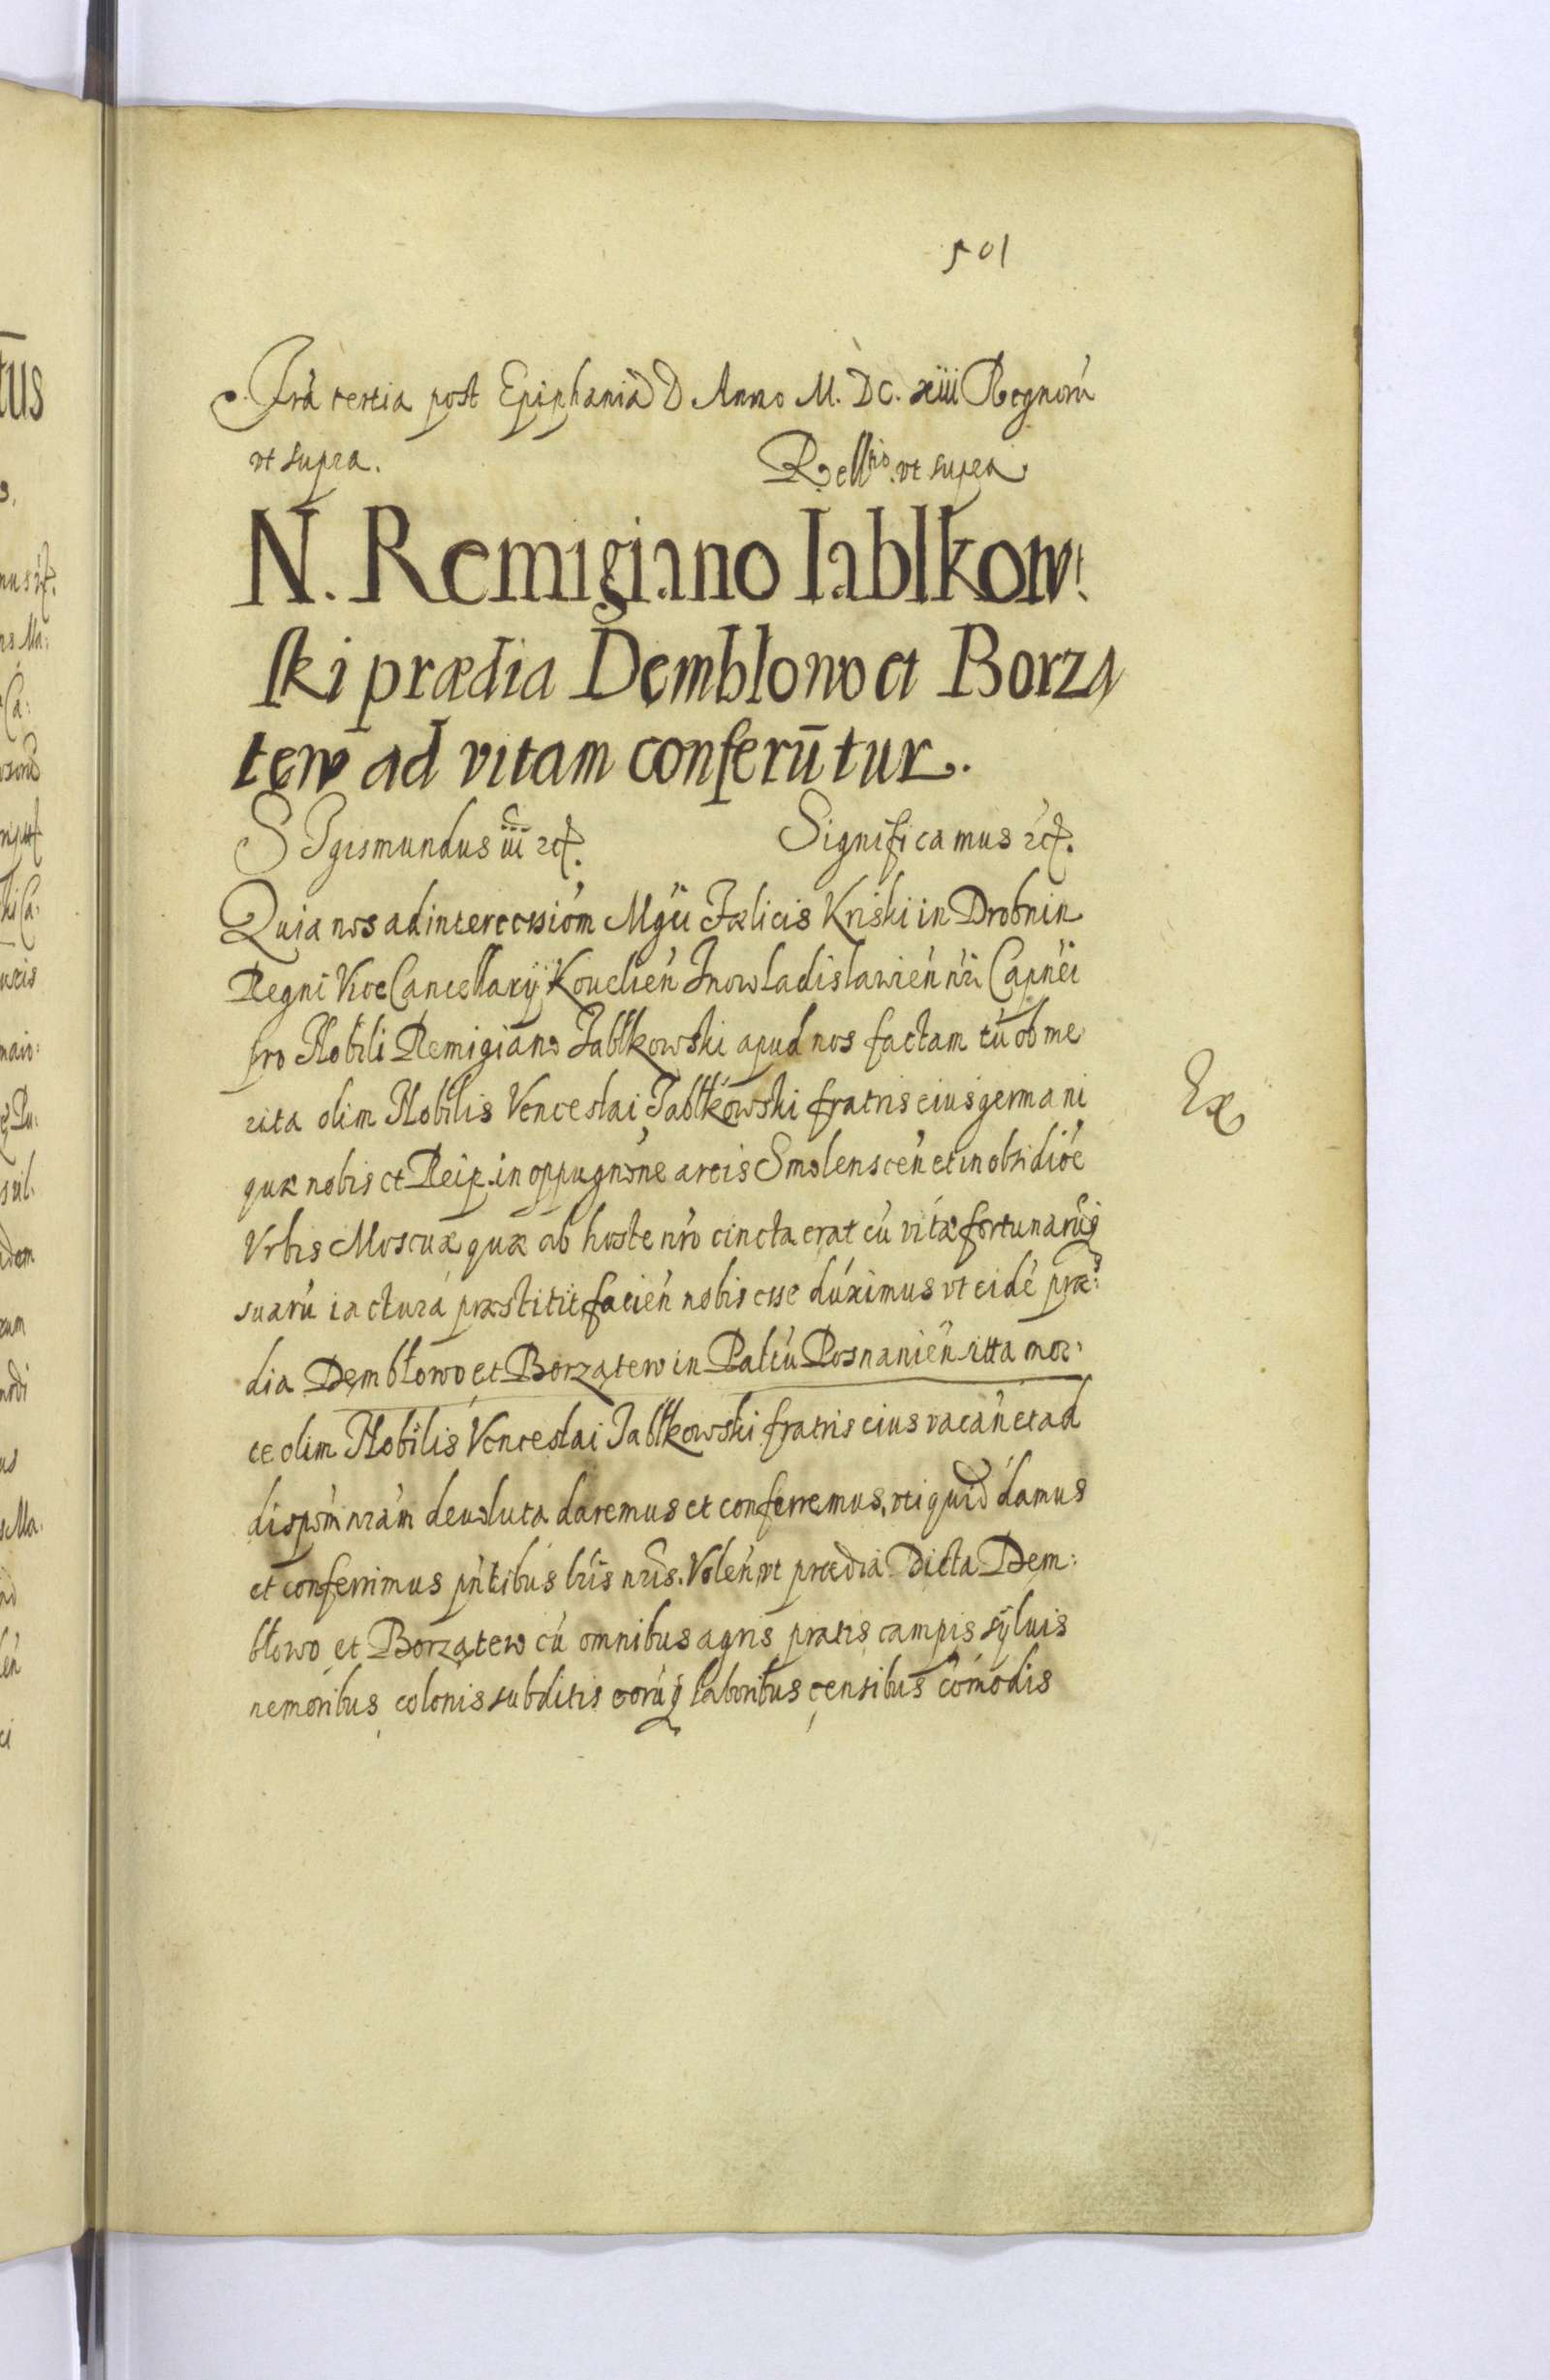 501
Frâ tertia post Epiphaniã D Anno M. DC. xiii Regnorũ
vt supra. Rellio vt supra
N. Remigiano Iablkow:
ski prædia Dembłowo et Borzą
tew ad vitam conferūtur.
SIgismundus iii etc. Significamus etc.
Quia nos ad intercessiom̃ Mgci Fælicis Kriski in Drobnin
Regni ViceCancellarij Kouelień Inowladislawień nri Capnei
pro Nobili Remigiano Jabłkowski apud nos factam tũ ob me
rita olim Nobilis Venceslai Jabłkowski fratris eius germani
quæ nobis et Reip. in oppugnõne arcis Smolensceń et in obsidiõe
Vrbis Moscuæ quæ ab hoste nrõ cincta erat cũ vitæ fortunarũq
suarũ iacturá præstitit facień nobis esse dúximus vt eidẽ præ:
dia Dembłowo et Borzątew in Paltũ Posnanień sita mor:
te olim Nobilis Venceslai Jabłkowski fratris eius vacań et ad
dispom̃ nram̃ deuoluta daremus et conferremus, vti quid damus
et conferrimus pñtibus lrĩs nrĩs. Voleń vt prædia Dicta Dem:
błowo et Borzątew cũ omnibus agris pratis campis syluis
nemoribus colonis subditis eorũq laboribus censibus cõmodis
Ex
tus